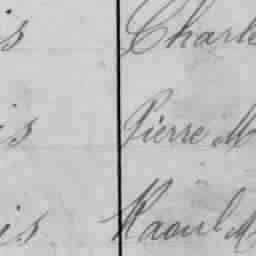 is Charle
is Pierre M
is Raoul M